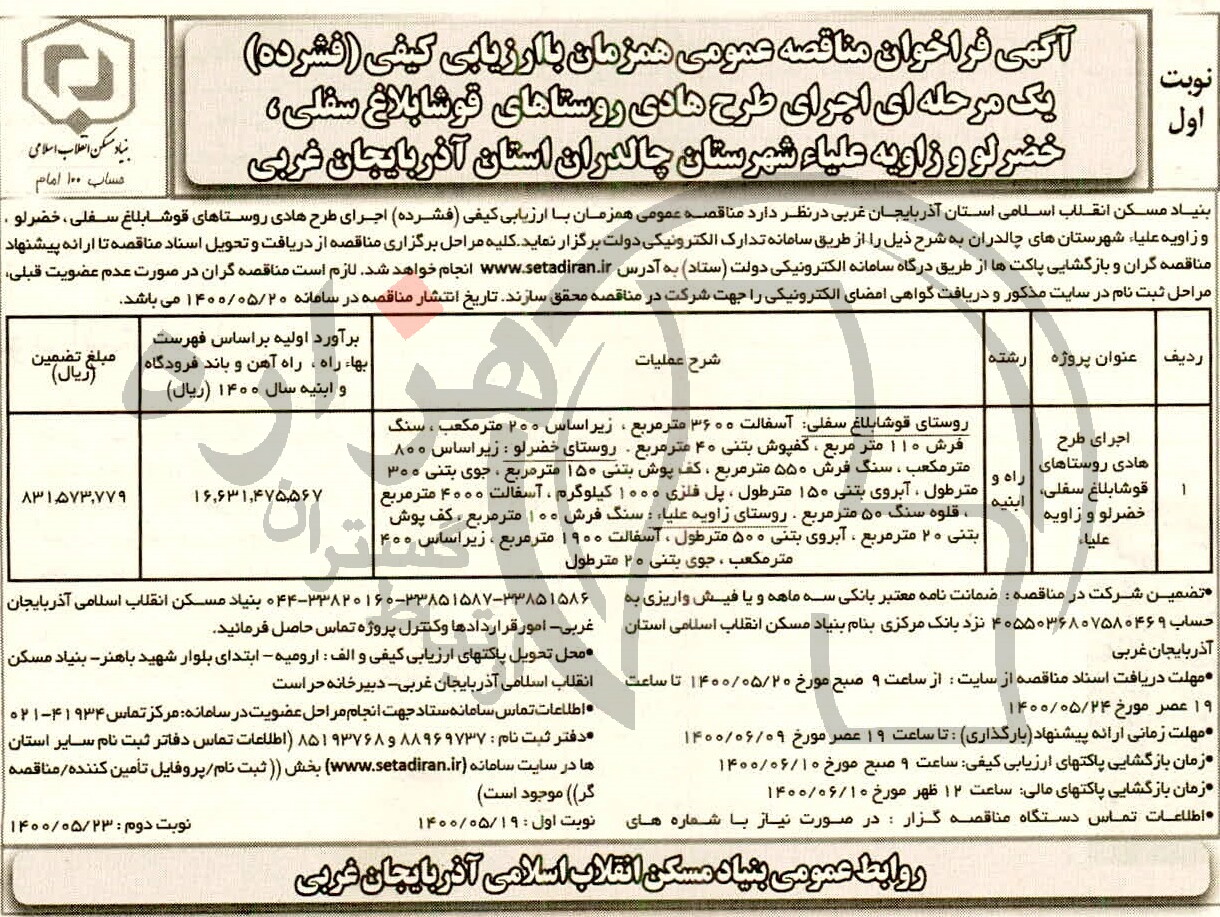 نوبت
اول
آگهی فراخوان مناقصه عمومی همزمان باارزیابی کیفی (فشرده)
یک مرحله ای اجرای طرح هادی روستاهای قوشابلاغ سفلی ،
خضرلو و زاویه علیاء شهرستان چالدران استان آذربایجان غربی
بنیاد مسکن انقلاب اسلامی
حساب ۱۰۰ امام
بنیاد مسکن انقلاب اسلامی استان آذربایجان غربی در نظر دارد مناقصه عمومی همزمان با ارزیابی کیفی (فشرده) اجرای طرح هادی روستاهای قوشابلاغ سفلی ، خضرلو ،
و زاویه علیاء شهرستان های چالدران به شرح ذیل را از طریق سامانه تدارک الکترونیکی دولت برگزار نماید.کلیه مراحل برگزاری مناقصه از دریافت و تحویل اسناد مناقصه تا ارائه پیشنهاد
مناقصه گران و بازگشایی پاکت ها از طریق درگاه سامانه الکترونیکی دولت (ستاد) به آدرس www.setadiran.ir انجام خواهد شد. لازم است مناقصه گران در صورت عدم عضویت قبلی،
مراحل ثبت نام در سایت مذکور و دریافت گواهی امضای الکترونیکی را جهت شرکت در مناقصه محقق سازند. تاریخ انتشار مناقصه در سامانه ۱۴۰۰/۰۵/۲۰ می باشد.
ردیف
عنوان پروژه
رشته
شرح عملیات
برآورد اولیه براساس فهرست
بهاء راه ، راه آهن و باند فرودگاه
و ابنیه سال ۱۴۰۰ (ریال)
مبلغ تضمین
(ریال)
۱
اجرای طرح
هادی روستاهای
قوشابلاغ سفلی،
خضرلو و زاویه
علیاء
راه و
ابنیه
روستای قوشابلاغ سفلی: آسفالت ۳۶۰۰ مترمربع ، زیراساس ۲۰۰ مترمکعب ، سنگ
فرش ۱۱۰ متر مربع ، کفپوش بتنی ۴۰ مترمربع . روستای خضرلو : زیراساس ۸۰۰
مترمکعب ، سنگ فرش ۵۵۰ مترمربع ، کف پوش بتنی ۱۵۰ مترمربع ، جوی بتنی ۳۰۰
مترطول ، آبروی بتنی ۱۵۰ مترطول ، پل فلزی ۱۰۰۰ کیلوگرم ، آسفالت ۴۰۰۰ مترمربع
، قلوه سنگ ۵۰ مترمربع . روستای زاویه علیاء : سنگ فرش ۱۰۰ مترمربع ، کف پوش
بتنی ۲۰ مترمربع ، آبروی بتنی ۵۰۰ مترطول ، آسفالت ۱۹۰۰ مترمربع ، زیراساس ۴۰۰
مترمکعب ، جوی بتنی ۲۰ مترطول
۱۶,۶۳۱,۴۷۵,۵۶۷
۸۳۱,۵۷۳,۷۷۹
•تضمین شرکت در مناقصه : ضمانت نامه معتبر بانکی سه ماهه و یا فیش واریزی به
حساب ۴۰۵۵۰۳۶۸۰۷۵۸۰۴۶۹ نزد بانک مرکزی بنام بنیاد مسکن انقلاب اسلامی استان
آذربایجان غربی
•مهلت دریافت اسناد مناقصه از سایت : از ساعت ۹ صبح مورخ ۱۴۰۰/۰۵/۲۰ تا ساعت
۱۹ عصر مورخ ۱۴۰۰/۰۵/۲۴
•مهلت زمانی ارائه پیشنهاد(بارگذاری) : تا ساعت ۱۹ عصر مورخ ۱۴۰۰/۰۶/۰۹
•زمان بازگشایی پاکتهای ارزیابی کیفی: ساعت ۹ صبح مورخ ۱۴۰۰/۰۶/۱۰
•زمان بازگشایی پاکتهای مالی: ساعت ۱۲ ظهر مورخ ۱۴۰۰/۰۶/۱۰
•اطلاعات تماس دستگاه مناقصه گزار : در صورت نیاز با شماره های
۰۴۴-۳۳۸۲۰۱۶۰-۳۳۸۵۱۵۸۷-۳۳۸۵۱۵۸۶ بنیاد مسکن انقلاب اسلامی آذربایجان
غربی- امور قراردادها وکنترل پروژه تماس حاصل فرمائید.
•محل تحویل پاکتهای ارزیابی کیفی و الف : ارومیه - ابتدای بلوار شهید باهنر- بنیاد مسکن
انقلاب اسلامی آذربایجان غربی- دبیرخانه حراست
•اطلاعات تماس سامانه ستاد جهت انجام مراحل عضویت در سامانه: مرکز تماس ۴۱۹۳۴-۰۲۱
•دفتر ثبت نام : ۸۸۹۶۹۷۳۷ و ۸۵۱۹۳۷۶۸ (اطلاعات تماس دفاتر ثبت نام سایر استان
ها در سایت سامانه (www.setadiran.ir) بخش (( ثبت نام/پروفایل تأمین کننده/مناقصه
گر)) موجود است)
نوبت اول : ۱۴۰۰/۰۵/۱۹ نوبت دوم : ۱۴۰۰/۰۵/۲۳
روابط عمومی بنیاد مسکن انقلاب اسلامی آذربایجان غربی
هزاره